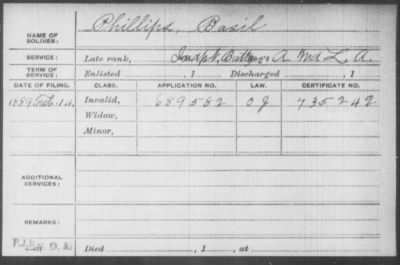 NAME OF SOLDIER: Phillips, Basil
SERVICE: Late rank, Batty A. Md. L. A.
TERM OF SERVICE: Enlisted , 1 , Discharged , 1
DATE OF FILING. CLASS. APPLICATION NO. LAW. CERTIFICATE NO.
1889 Feb. 14. Invalid, 689582 O J 735242
Widow,
Minor,
ADDITIONAL SERVICES:
REMARKS:
Died , 1 , at